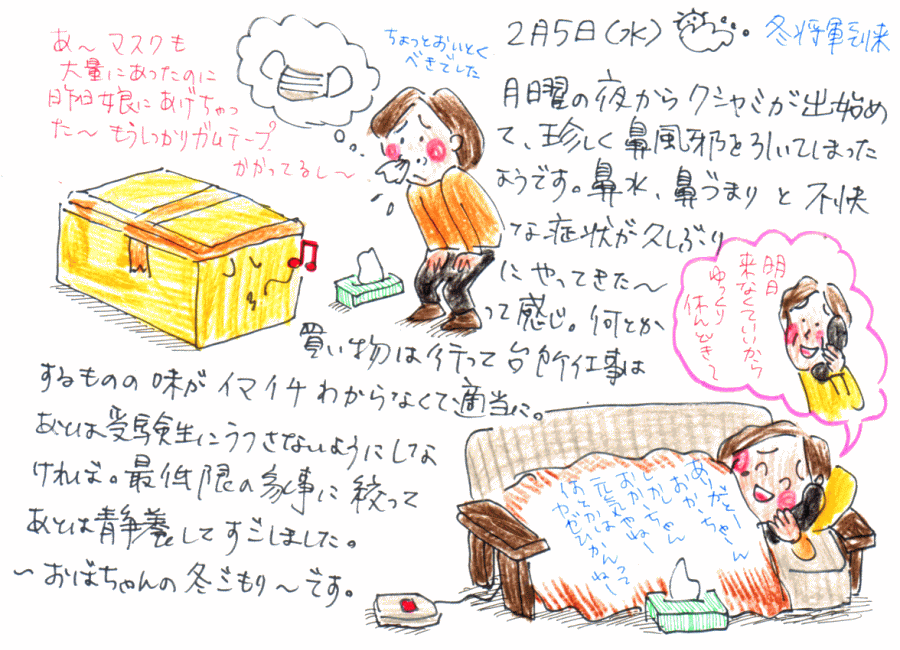 2月5日(水)
冬将軍到来
あ～マスクも
大量にあったのに
昨日娘にあげちゃっ
た～もうしっかりガムテープ
かかってるし～
ちょっとおいとく
べきでした
月曜の夜からクシャミが出始め
て、珍しく鼻風邪を引いてしまった
ようです。鼻水、鼻づまりと不快
な症状が久しぶり
にやってきた～
って感じ。何とか
買い物は行って台所仕事は
するものの味がイマイチわからなくて適当に。
あとは受験生にうつさないようにしな
ければ。最低限の家事に絞って
あとは静養してすごしました。
～おばちゃんの冬ごもり～です。
明日
来なくていいから
ゆっくり
休んどきて
ありがとー
おかーちゃーん
しかし
おかーちゃん
元気やねー